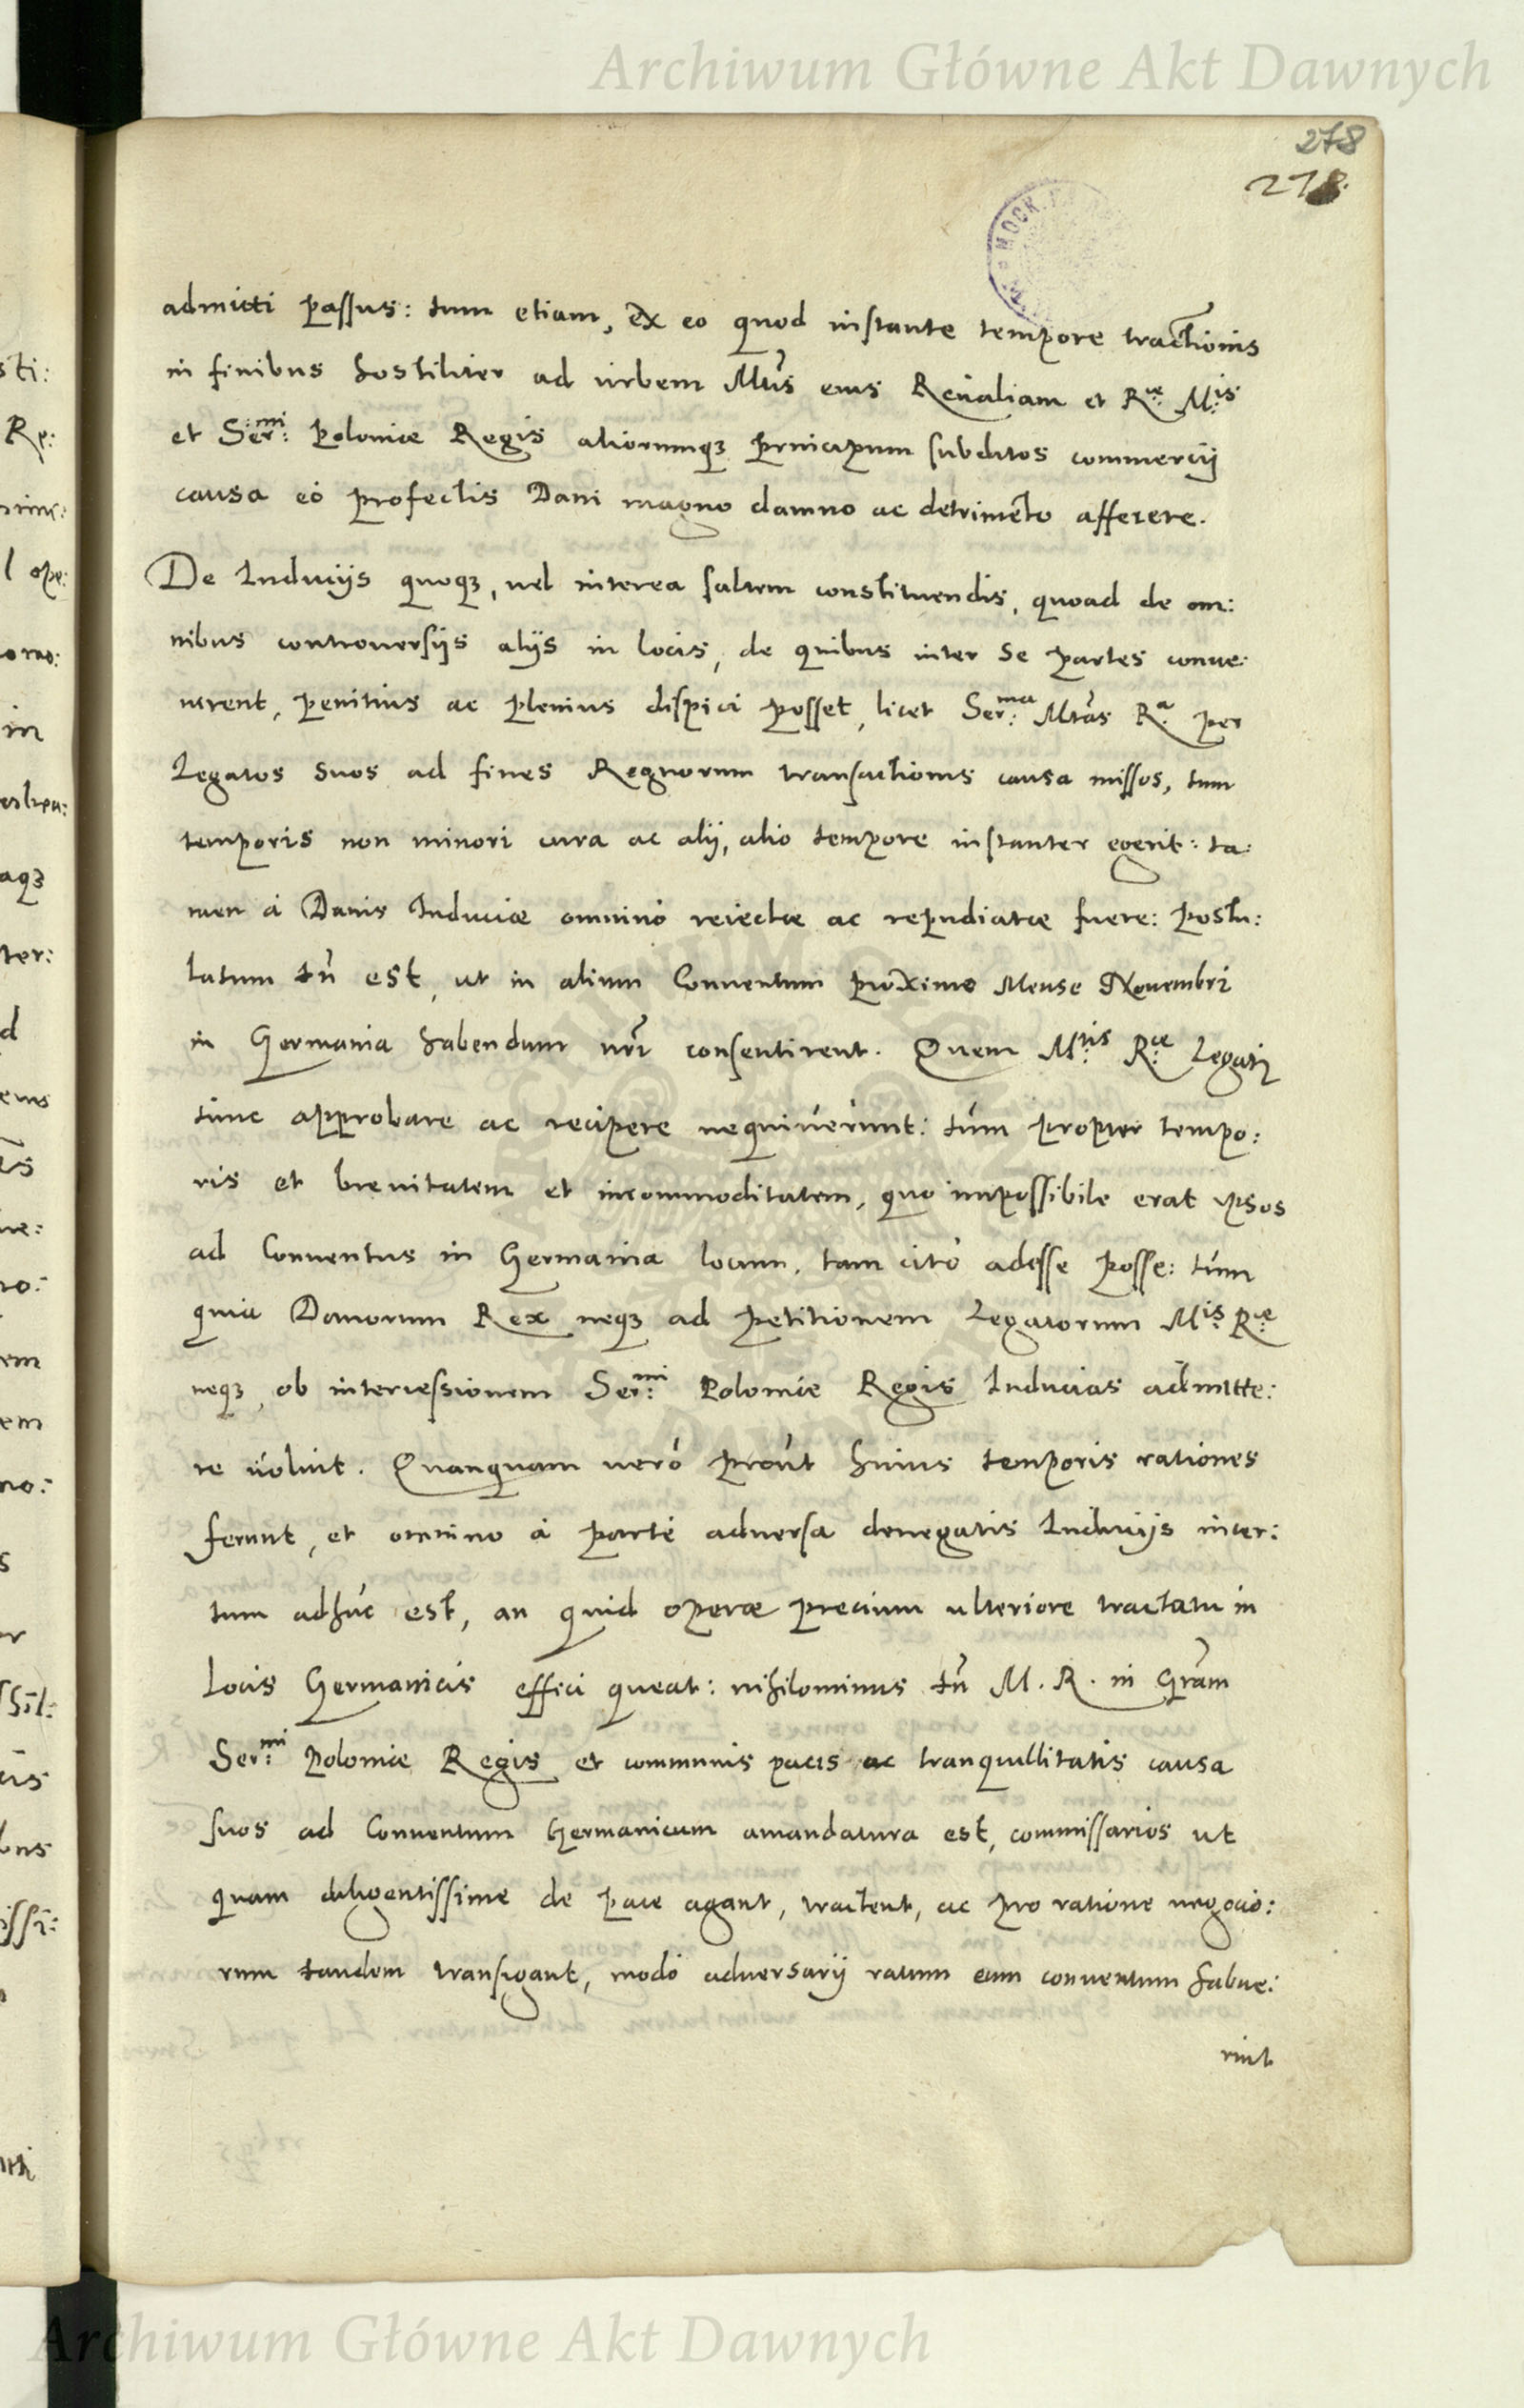 Archiwum Główne Akt Dawnych
278
278.
admitti passus: tum etiam, ex eo quod instante tempore tractionis
in finibus hostiliter ad urbem Mtis eius Reualiam et Rae Mtis
et Sermi Poloniae Regis aliorumq3 principum subditos commercij
causa eò profectis Dani magno damno ac detrimēto afferere.
De Inducijs quoq3, uel interea saltem constituendis, quoad de om:
nibus controuersijs alijs in locis, de quibus inter se partes conue:
nirent, penitius ac plenius dispici posset, licet Serma Mtas Ra per
Legatos suos ad fines Regnorum transactionis causa missos, tum
temporis non minori cura ac alij, alio tempore instanter egerit: ta:
men à Danis Induciae omnino reiectae ac repudiatae fuere: Postu:
latum tn̄ est, ut in alium Conuentum proximo Mense Nouembri
in Germania habendum nr̄i consentirent. Quem Mtis Rae Legati
tunc approbare ac recipere nequiuerunt: tum propter tempo:
ris et breuitatem et incommoditatem, quo impossibile erat ipsos
ad Conuentus in Germania locum, tam cito adesse posse: tum
quia Danorum Rex neq3 ad petitionem Legatorum Mtis Rae
neq3 ob intercessionem Sermi Poloniae Regis Inducias admitte:
re uoluit. Quanquam uerò prout huius temporis rationes
ferunt, et omnino à parte aduersa denegatis Inducijs incer:
tum adhuc est, an quid operae precium ulteriore tractatu in
locis Germanicis effici queat: nihilominus tn̄ M. R. in Gr̄am
Sermi Poloniae Regis et communis pacis ac tranquillitatis causa
suos ad Conuentum Germanicum amandatura est, commissarios ut
quam diligentissime de pace agant, tractent, ac pro ratione negocio:
rum tandem transigant, modò aduersarij ratum eum conuentum habue:
rint
Archiwum Główne Akt Dawnych